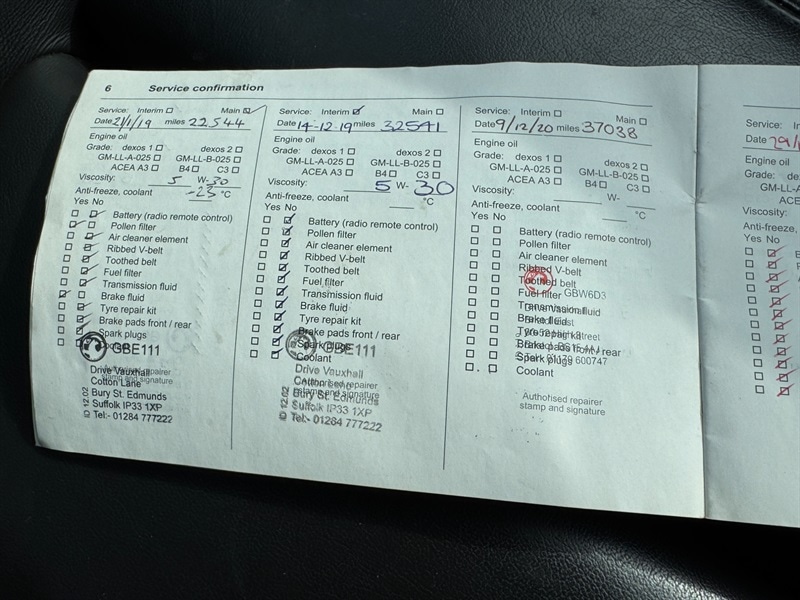 6 Service confirmation
Service: Interim Main
Date 21/1/19 miles 22544
Engine oil
Grade: dexos 1 dexos 2
GM-LL-A-025 GM-LL-B-025
ACEA A3 B4 C3
Viscosity: 5 W-30
Anti-freeze, coolant -25 °C
Yes No
Battery (radio remote control)
Pollen filter
Air cleaner element
Ribbed V-belt
Toothed belt
Fuel filter
Transmission fluid
Brake fluid
Tyre repair kit
Brake pads front / rear
Spark plugs
GBE111
Drive Vauxhall
Cotton Lane
Bury St. Edmunds
Suffolk IP33 1XP
Tel:- 01284 777222
ID 12.02
Authorised repairer
stamp and signature
Service: Interim Main
Date 14-12-19 miles 32541
Engine oil
Grade: dexos 1 dexos 2
GM-LL-A-025 GM-LL-B-025
ACEA A3 B4 C3
Viscosity: 5 W-30
Anti-freeze, coolant °C
Yes No
Battery (radio remote control)
Pollen filter
Air cleaner element
Ribbed V-belt
Toothed belt
Fuel filter
Transmission fluid
Brake fluid
Tyre repair kit
Brake pads front / rear
Spark plugs
Coolant
GBE111
Drive Vauxhall
Cotton Lane
Bury St. Edmunds
Suffolk IP33 1XP
Tel:- 01284 777222
ID 12.02
Authorised repairer
stamp and signature
Service: Interim Main
Date 9/12/20 miles 37038
Engine oil
Grade: dexos 1 dexos 2
GM-LL-A-025 GM-LL-B-025
ACEA A3 B4 C3
Viscosity: W-
Anti-freeze, coolant °C
Yes No
Battery (radio remote control)
Pollen filter
Air cleaner element
Ribbed V-belt
Toothed belt
Fuel filter GBW6D3
Transmission fluid
Brake fluid
Tyre repair kit
Brake pads front / rear
Spark plugs
Coolant
Authorised repairer
stamp and signature
Date
Engine oil
Grade:
GM-LL-A
ACEA
Viscosity:
Anti-freeze,
Yes No